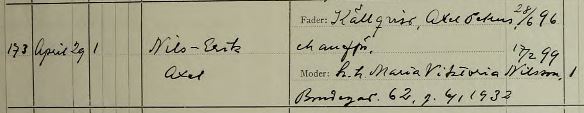 Fader: Källqvist, Axel Petrus 28/6 96
173 April 29 1 Nils-Erik chaufför,
Axel Moder: h. h. Maria Viktoria Nilsson, 17/2 99 1
62, g. 4/1 1932